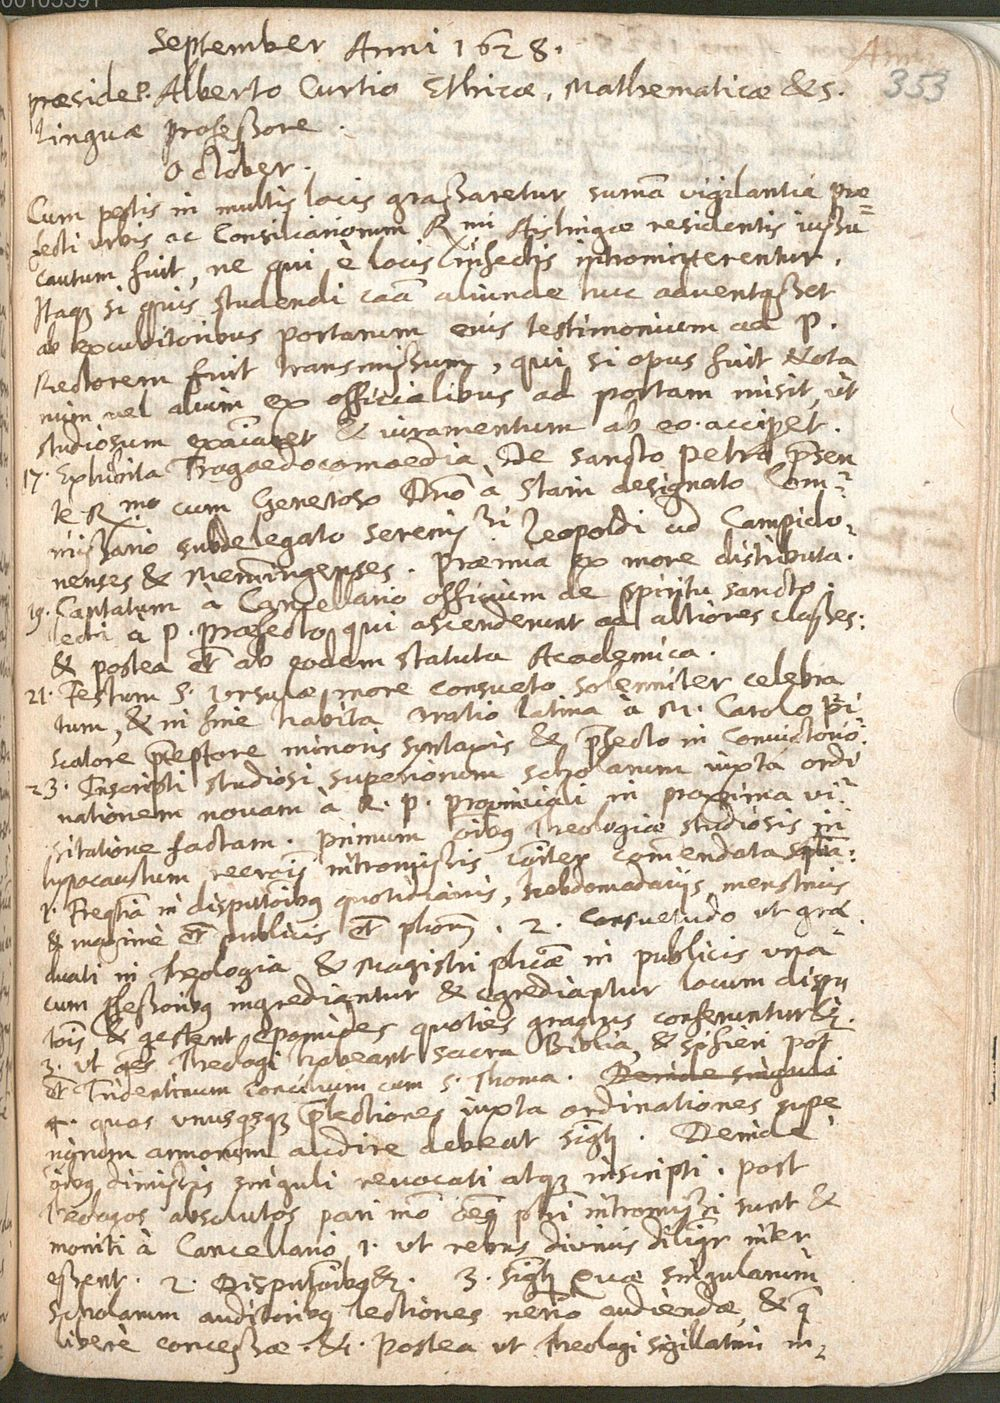 00105391
September Anni 1628.
Anni
353
præside P. Alberto Curtio Ethicæ, Mathematicæ & S.
Linguæ professore.
October.
Cum pestis in multis locis graßaretur sumâ vigilantiâ præ=
fecti urbis ac Consiliariorum Rmi Aistingæ residentis iussu
cautum fuit, ne qui è locis infectis intromitterentur.
Itaqz si quis studendi caã aliunde huc aduentaßet
ab excubitoribus portarum eius testimonium ad P.
Rectorem fuit transmißum, qui si opus fuit Nota
rium vel alium ex officialibus ad portam misit, ut
studiosum exãiaret & iuramentum ab eo acciperet.
17. Exhibita Tragoedocomoedia De sancto Petro p̃sen
te Rmo cum Generoso Dño à Stain designato Com-
mißario subdelegato Sereniss.mi Leopoldi ad Campido-
nenses & Memingenses. Præmia ex more distributa.
19. Cantatum à Cancellario officium de spiritu sancto,
lecti à P. Præfecto qui ascenderunt ad altiores claßes:
& postea et ab eodem statuta Academica.
21. Festum S. Vrsulæ more consueto solenniter celebra
tum, & in fine habita oratio latina à M. Carolo Pi
scatore p̃ceptore minoris syntaxis & p̃fecto in Convictorio.
23. Inscripti studiosi superiorum scholarum iuxta ordi
nationem novam à R. P. Provinciali in proxima vi-
sitatione factam. Primum oĩbq Theologiæ studiosis in
hypocaustum intromissis cõiter comendata
1. Freq̃tia in disputõibq quotidianis, hebdomadarijs menstruis
& maxime et publicis et . 2. Consuetudo ut gra
duati in Theologia & Magistri in publicis una
cum p̃feßoribq ingrediantur & egrediantur locum dispu
tõis & gestent epomides quoties gradus conferuntur &.
3. ut oẽs Theologi habeant sacra Biblia, & si fieri pot
et Tridentinum Concilium cum S. Thoma. Deinde singuli
4. quas unusqsqz p̃lectiones iuxta ordinationes supe
riorum annorum audire debeat . Deinde
oĩbq dimissis singuli revocati atqz inscripti. Post
Theologos absolutos pari mõ oẽs intromißi sunt &
moniti à Cancellario, 1. ut rebus divinis diligr inter
eßent. 2. Disputõibq &. 3. Quæ singularum
scholarum auditoribq lectiones audiendæ, & q̃
liberè conceßæ. &. Postea ut Theologi sigillatim in-